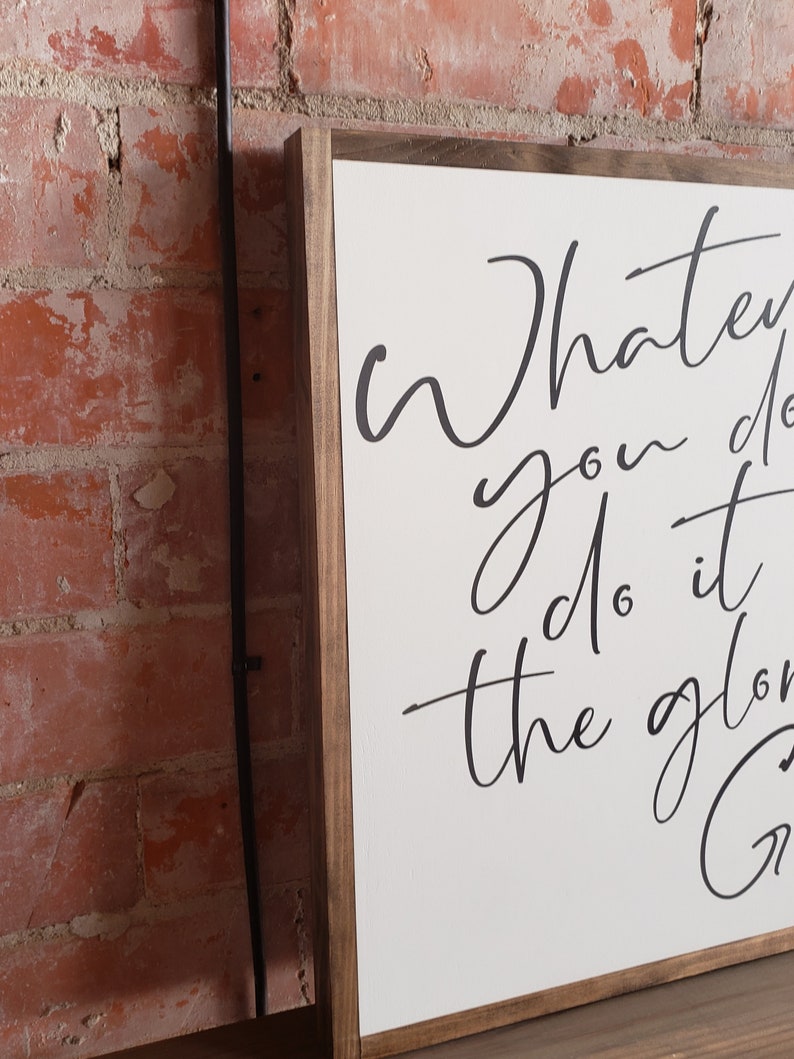 Whatev
you do
do it
the glor
G